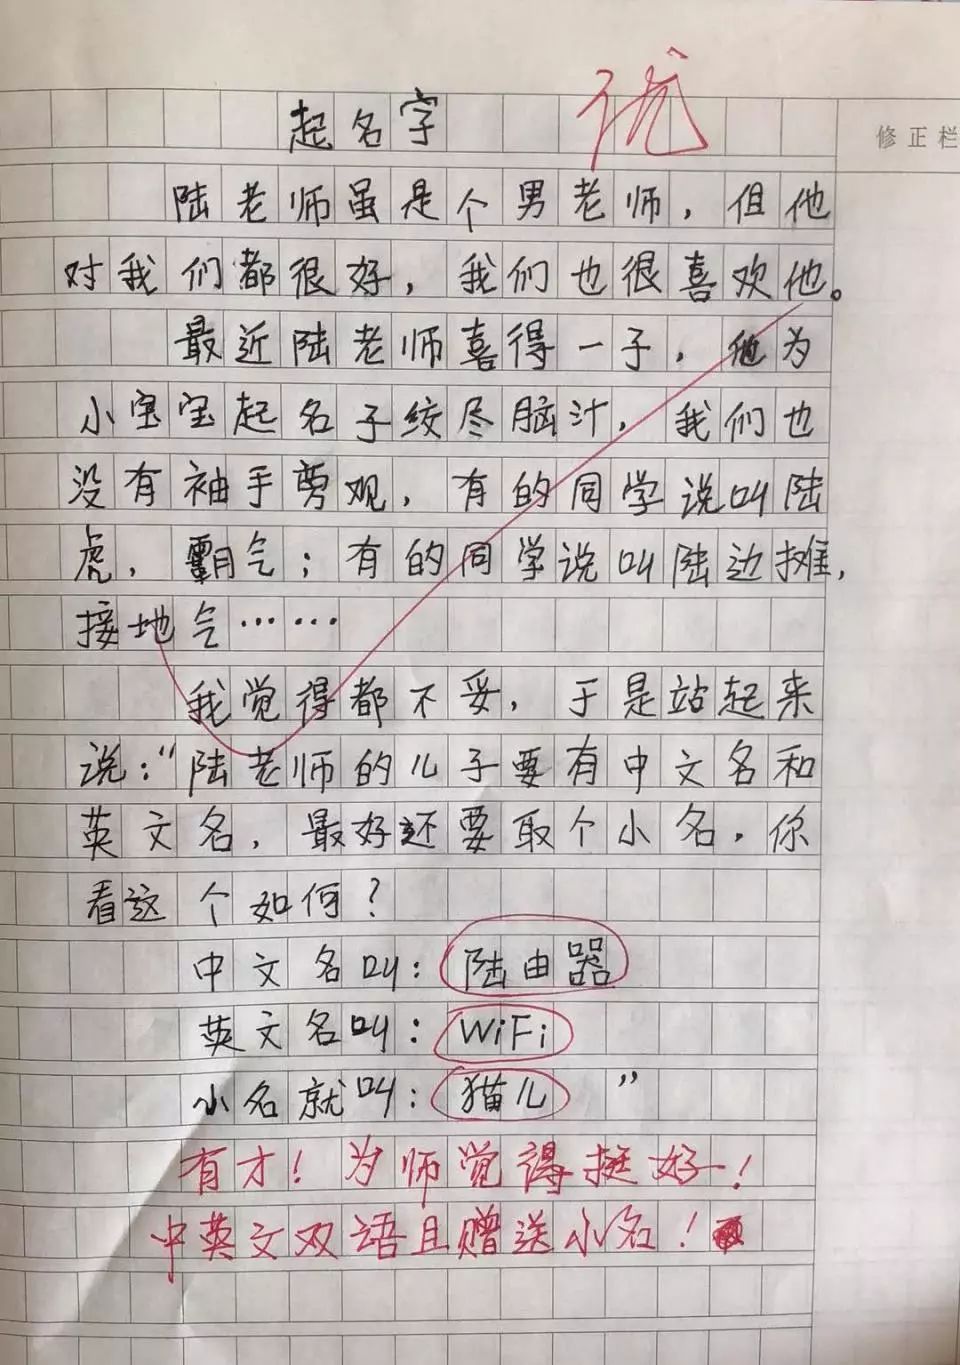 起名字
优
修正栏
陆老师虽是个男老师，但他
对我们都很好，我们也很喜欢他。
最近陆老师喜得一子，他为
小宝宝起名子绞尽脑汁，我们也
没有袖手旁观，有的同学说叫陆
虎，霸气；有的同学说叫陆边摊，
接地气……
我觉得都不妥，于是站起来
说："陆老师的儿子要有中文名和
英文名，最好还要取个小名，你
看这个如何？
中文名叫：陆由器
英文名叫：WiFi
小名就叫：猫儿"
有才！为师觉得挺好！
中英文双语且赠送小名！